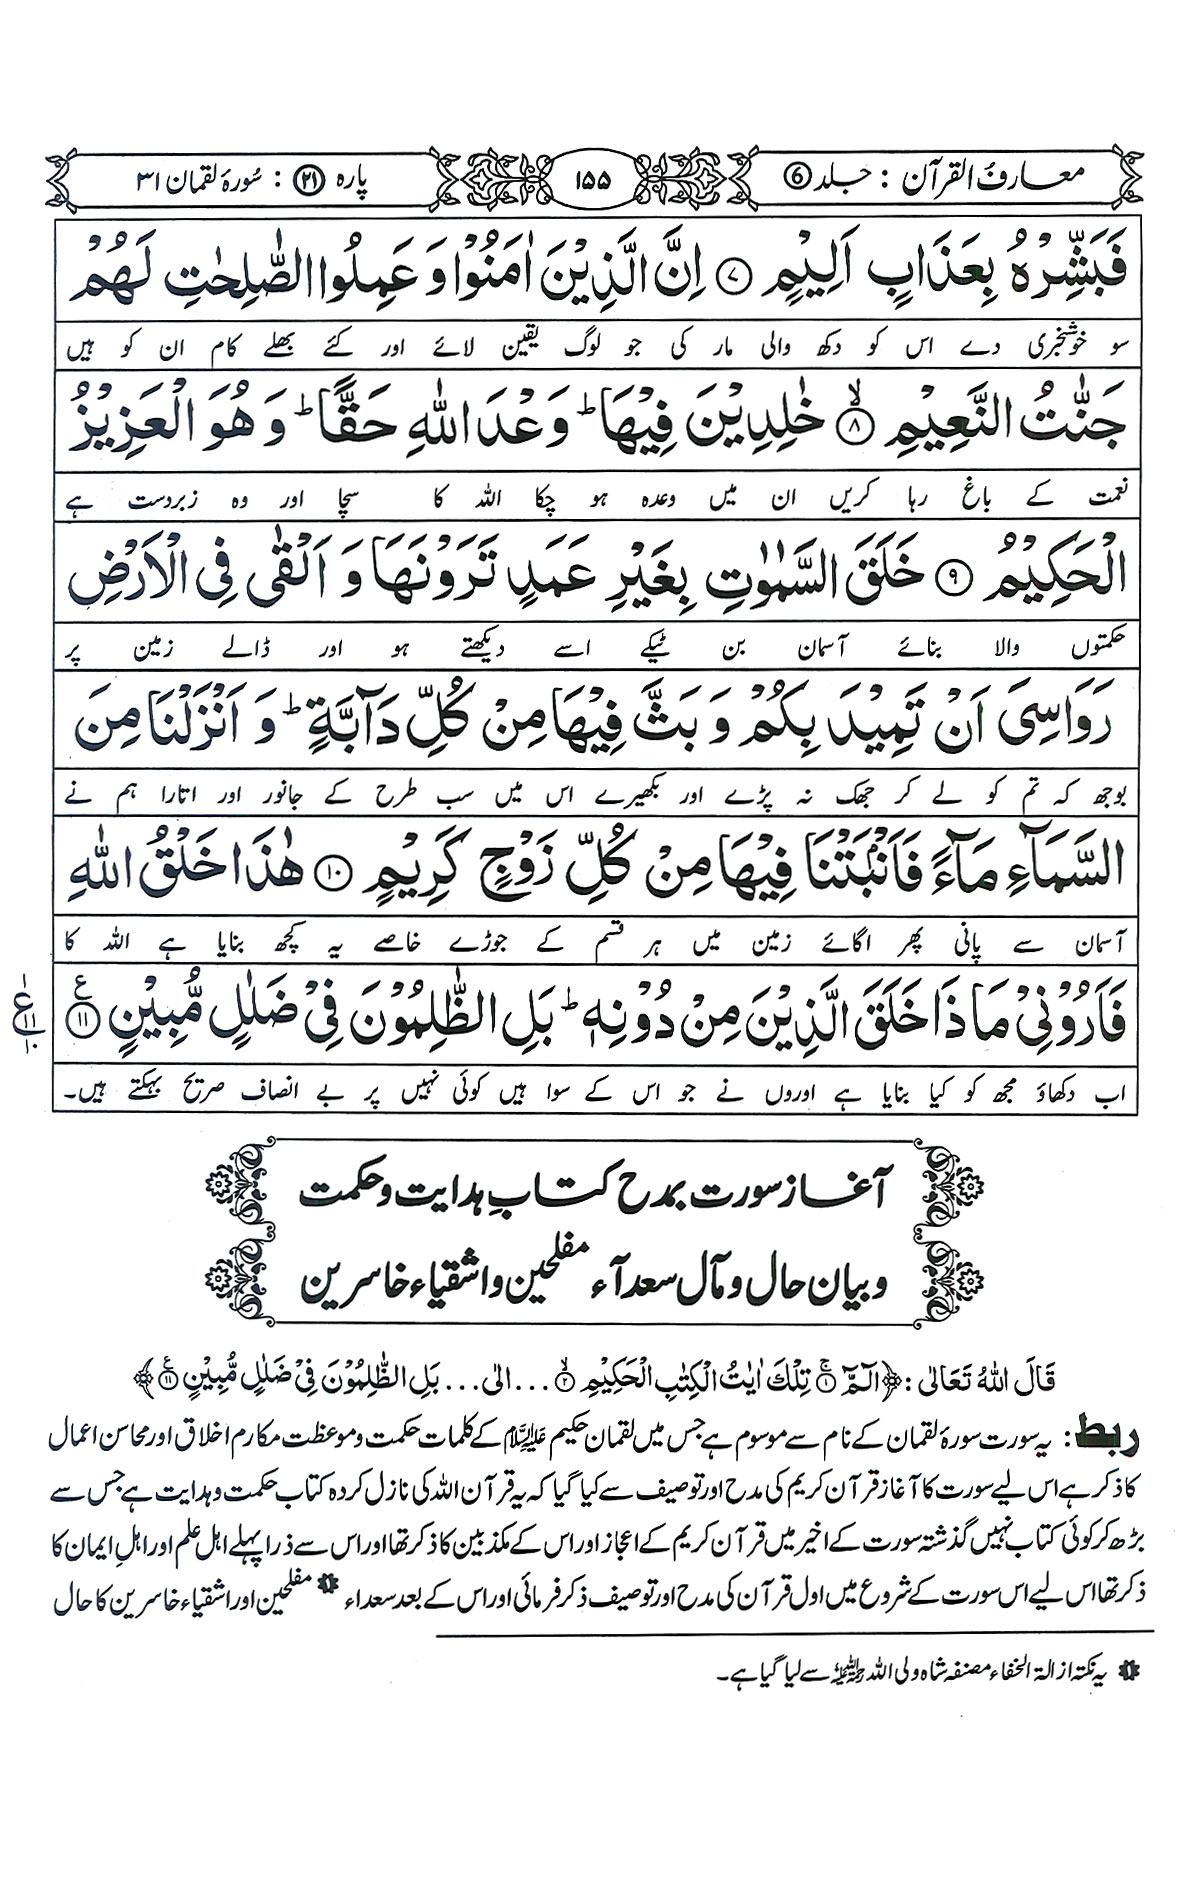 معارف القرآن : جلد ⑥
۱۵۵
پارہ ㉑ : سورۂ لقمان ۳۱
فَبَشِّرْهُ بِعَذَابٍ اَلِيْمٍ ۝۷ اِنَّ الَّذِيْنَ اٰمَنُوْا وَ عَمِلُوا الصّٰلِحٰتِ لَهُمْ
سو خوشخبری دے اس کو دکھ والی مار کی جو لوگ یقین لائے اور کئے بھلے کام ان کو ہیں
جَنّٰتُ النَّعِيْمِ ۝۸ۙ خٰلِدِيْنَ فِيْهَا ؕ وَعْدَ اللّٰهِ حَقًّا ؕ وَ هُوَ الْعَزِيْزُ
نعمت کے باغ رہا کریں ان میں وعدہ ہو چکا اللہ کا سچا اور وہ زبردست ہے
الْحَكِيْمُ ۝۹ خَلَقَ السَّمٰوٰتِ بِغَيْرِ عَمَدٍ تَرَوْنَهَا وَ اَلْقٰى فِى الْاَرْضِ
حکمتوں والا بنائے آسمان بن ٹیکے اسے دیکھتے ہو اور ڈالے زمین پر
رَوَاسِىَ اَنْ تَمِيْدَ بِكُمْ وَ بَثَّ فِيْهَا مِنْ كُلِّ دَآبَّةٍ ؕ وَ اَنْزَلْنَا مِنَ
بوجھ کہ تم کو لے کر جھک نہ پڑے اور بکھیرے اس میں سب طرح کے جانور اور اتارا ہم نے
السَّمَآءِ مَآءً فَاَنْۢبَتْنَا فِيْهَا مِنْ كُلِّ زَوْجٍ كَرِيْمٍ ۝۱۰ هٰذَا خَلْقُ اللّٰهِ
آسمان سے پانی پھر اگائے زمین میں ہر قسم کے جوڑے خاصے یہ کچھ بنایا ہے اللہ کا
فَاَرُوْنِىْ مَاذَا خَلَقَ الَّذِيْنَ مِنْ دُوْنِهٖ ؕ بَلِ الظّٰلِمُوْنَ فِىْ ضَلٰلٍ مُّبِيْنٍ ۝۱۱ۧ
اب دکھاؤ مجھ کو کیا بنایا ہے اوروں نے جو اس کے سوا ہیں کوئی نہیں پر بے انصاف صریح بہکتے ہیں۔
آغاز سورت بمدح کتابِ ہدایت و حکمت
و بیان حال و مآل سعدآء مفلحین و اشقیاء خاسرین
قَالَ اللّٰهُ تَعَالٰى : ﴿الٓمّٓ ۝۱ۚ تِلْكَ اٰيٰتُ الْكِتٰبِ الْحَكِيْمِ ۝۲ۙ ... الى ... بَلِ الظّٰلِمُوْنَ فِىْ ضَلٰلٍ مُّبِيْنٍ ۝۱۱ۧ﴾
ربط: یہ سورت سورۂ لقمان کے نام سے موسوم ہے جس میں لقمان حکیم علیہ السلام کے کلمات حکمت و موعظت مکارم اخلاق اور محاسن اعمال
کا ذکر ہے اس لیے سورت کا آغاز قرآن کریم کی مدح اور توصیف سے کیا گیا کہ یہ قرآن اللہ کی نازل کردہ کتاب حکمت و ہدایت ہے جس سے
بڑھ کر کوئی کتاب نہیں گذشتہ سورت کے اخیر میں قرآن کریم کے اعجاز اور اس کے مکذبین کا ذکر تھا اور اس سے ذرا پہلے اہل علم اور اہلِ ایمان کا
ذکر تھا اس لیے اس سورت کے شروع میں اول قرآن کی مدح اور توصیف ذکر فرمائی اور اس کے بعد سعداء ❶ مفلحین اور اشقیاء خاسرین کا حال
❶ یہ نکتہ ازالۃ الخفاء مصنفہ شاہ ولی اللہ رحمۃ اللہ علیہ سے لیا گیا ہے۔